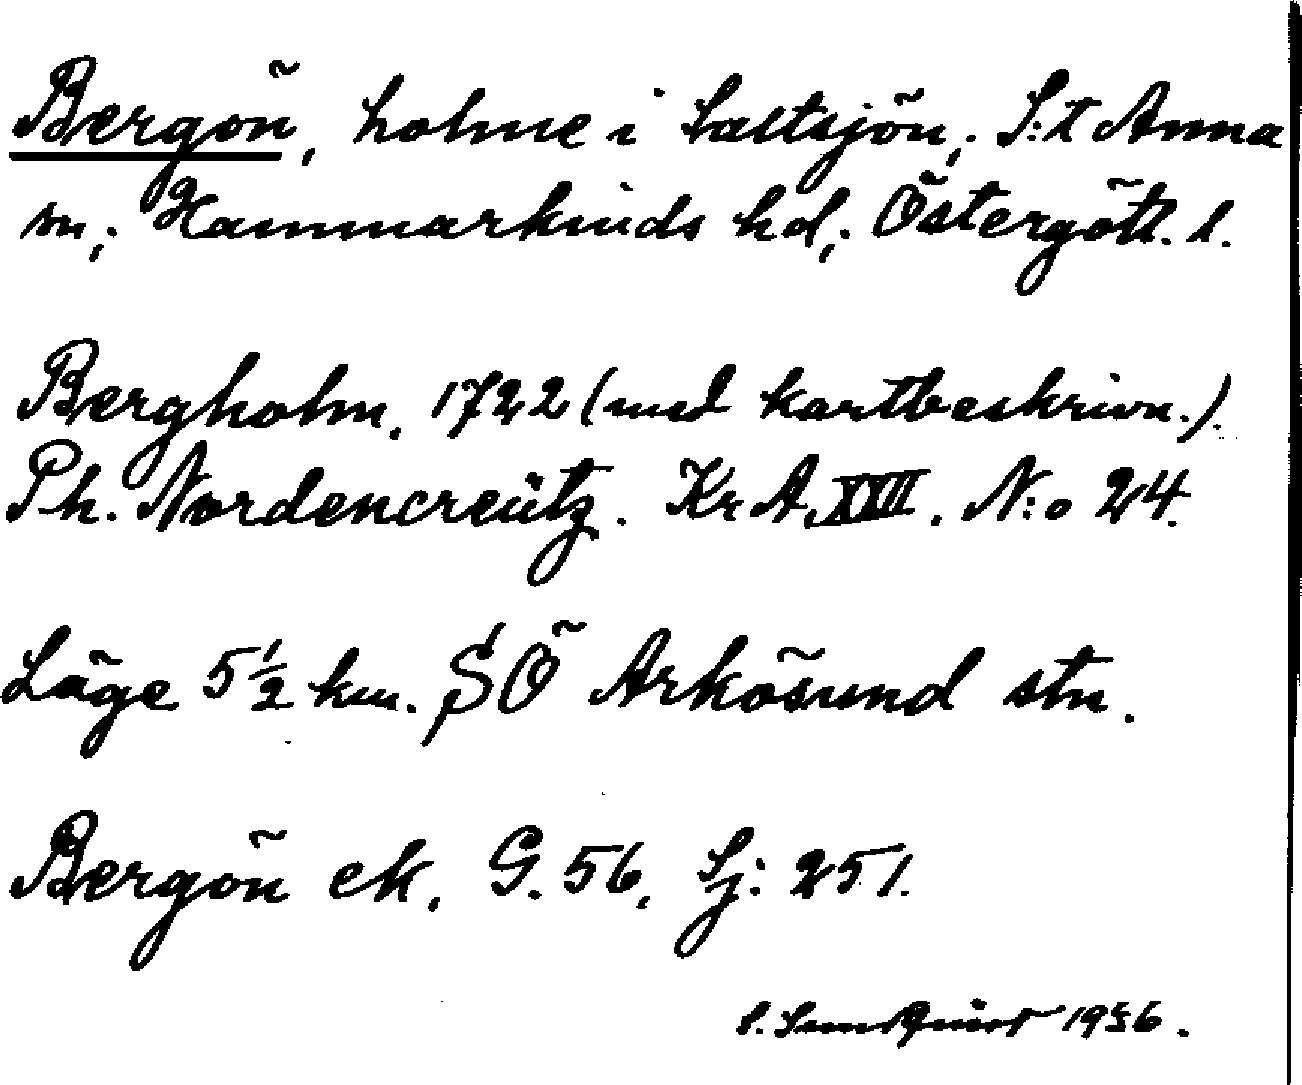 Bergön, holme i saltsjön; S:t Anna
sn; Hammarkinds hd; Östergötl. l.
Bergholm. 1722 (med kartbeskrivn.).
Ph. Nordencreütz. Kr A. XVII. N:o 24.
Läge 5 1/2 km. SÖ Arkösund stn.
Bergön ek. G. 56. Sj: 251.
1936.